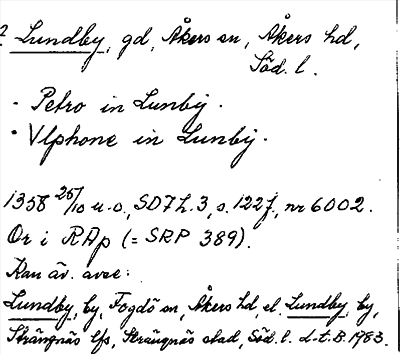 ? Lundby, gd, Åkers sn, Åkers hd,
Söd. l.
- Petro in Lunbij.
- Vlphone in Lunbij.
1358 25/10 u.o., SD7h.3, s.122f, nr 6002.
Or i RAp (= SRP 389).
Kan äv. avse:
Lundby, by, Fogdö sn, Åkers hd, el. Lundby, by,
Strängnäs lfs, Strängnäs stad, Söd. l. L-t.B. 1983.